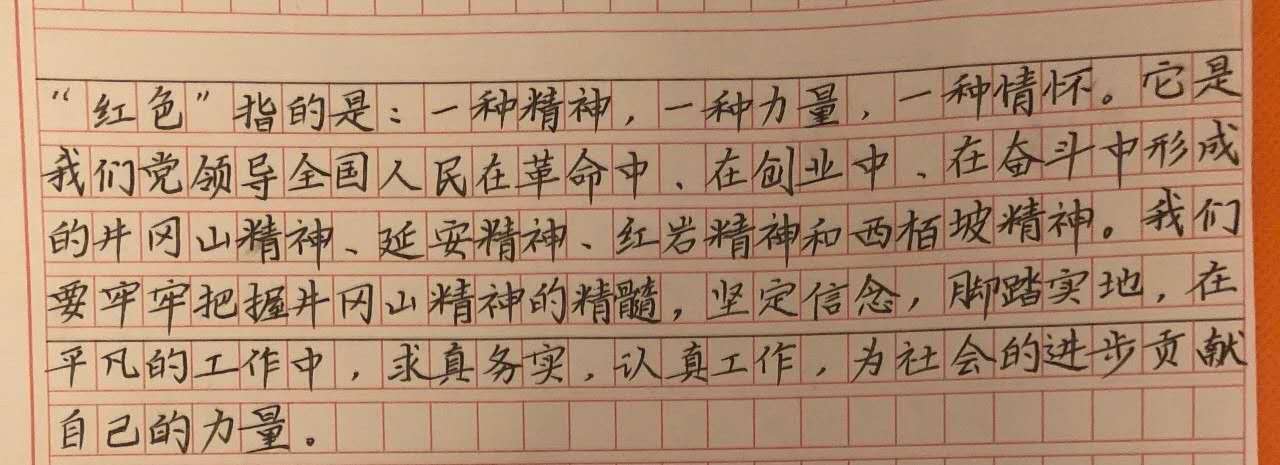 “红色”指的是：一种精神，一种力量，一种情怀。它是
我们党领导全国人民在革命中、在创业中、在奋斗中形成
的井冈山精神、延安精神、红岩精神和西柏坡精神。我们
要牢牢把握井冈山精神的精髓，坚定信念，脚踏实地，在
平凡的工作中，求真务实，认真工作，为社会的进步贡献
自己的力量。